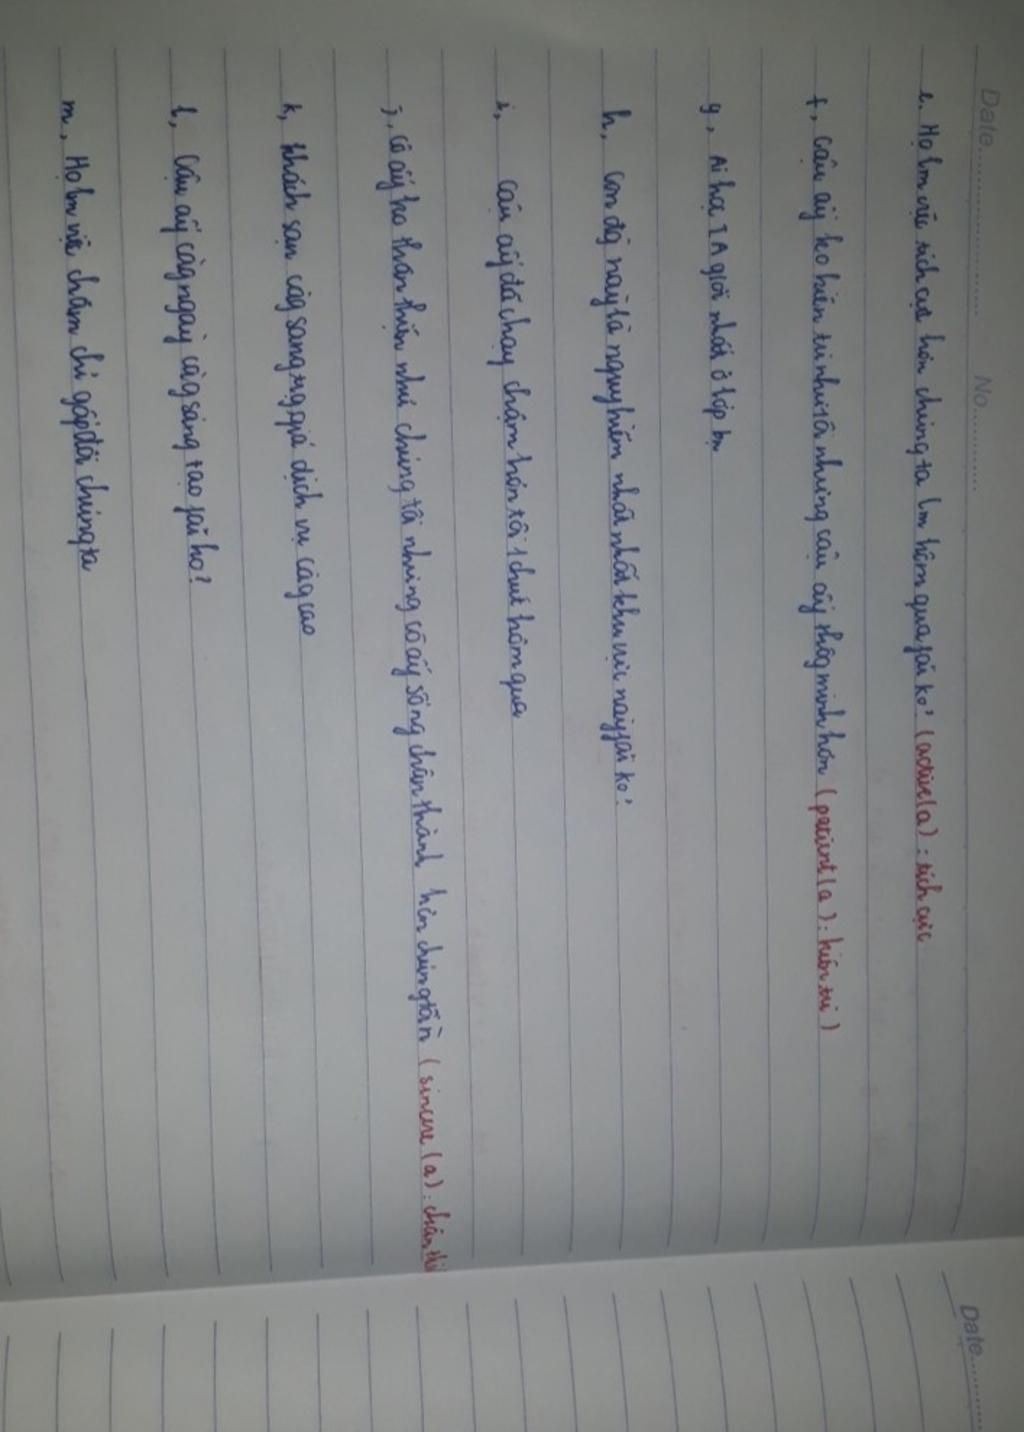 Date.................... No............
e. Họ lm việc tích cực hơn chúng ta lm hôm qua fải ko? (active(a): tích cực
f, cậu ấy ko kiên trì như tôi nhưng cậu ấy thôg minh hơn (patient(a): kiên trì)
g, Ai học TA giỏi nhất ở lớp bn
h, con đg này là nguy hiểm nhất nhất khu vực này fải ko?
i, cậu ấy đã chạy chậm hơn tôi 1 chút hôm qua
j, cô ấy ko thân thiện như chúng tôi nhưng cô ấy sống chân thành hơn chúng tôi (sincere(a): chân thà
k, khách sạn càg sang trọg giá dịch vụ càg cao
l, Cậu ấy càg ngày càg sáng tạo fải ko?
m, Họ lm việc chăm chỉ gấp đôi chúng ta
Date............